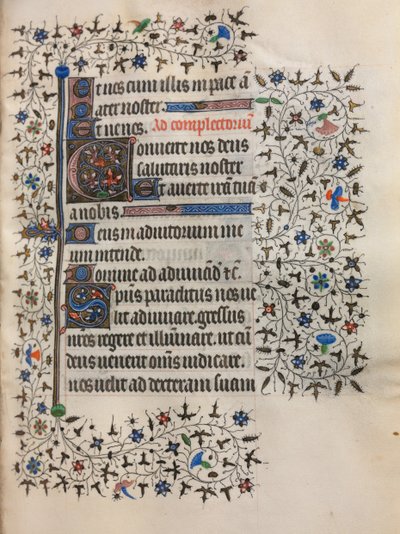 Et nos cum illis in pace ā
Pater noster.
Et ne nos. Ad complectorium
Conuerte nos deus
salutaris noster
Et auerte irā tuā
a nobis
Deus in adiutorium me
um intende.
Domine ad adiuuād ꝛc.
Spūs paraclitus nos ue
lit adiuuare. gressus
nr̄os regere et illuīnare. ut cū
deus uenerit om̄s iudicare.
nos uelit ad dexteram suam